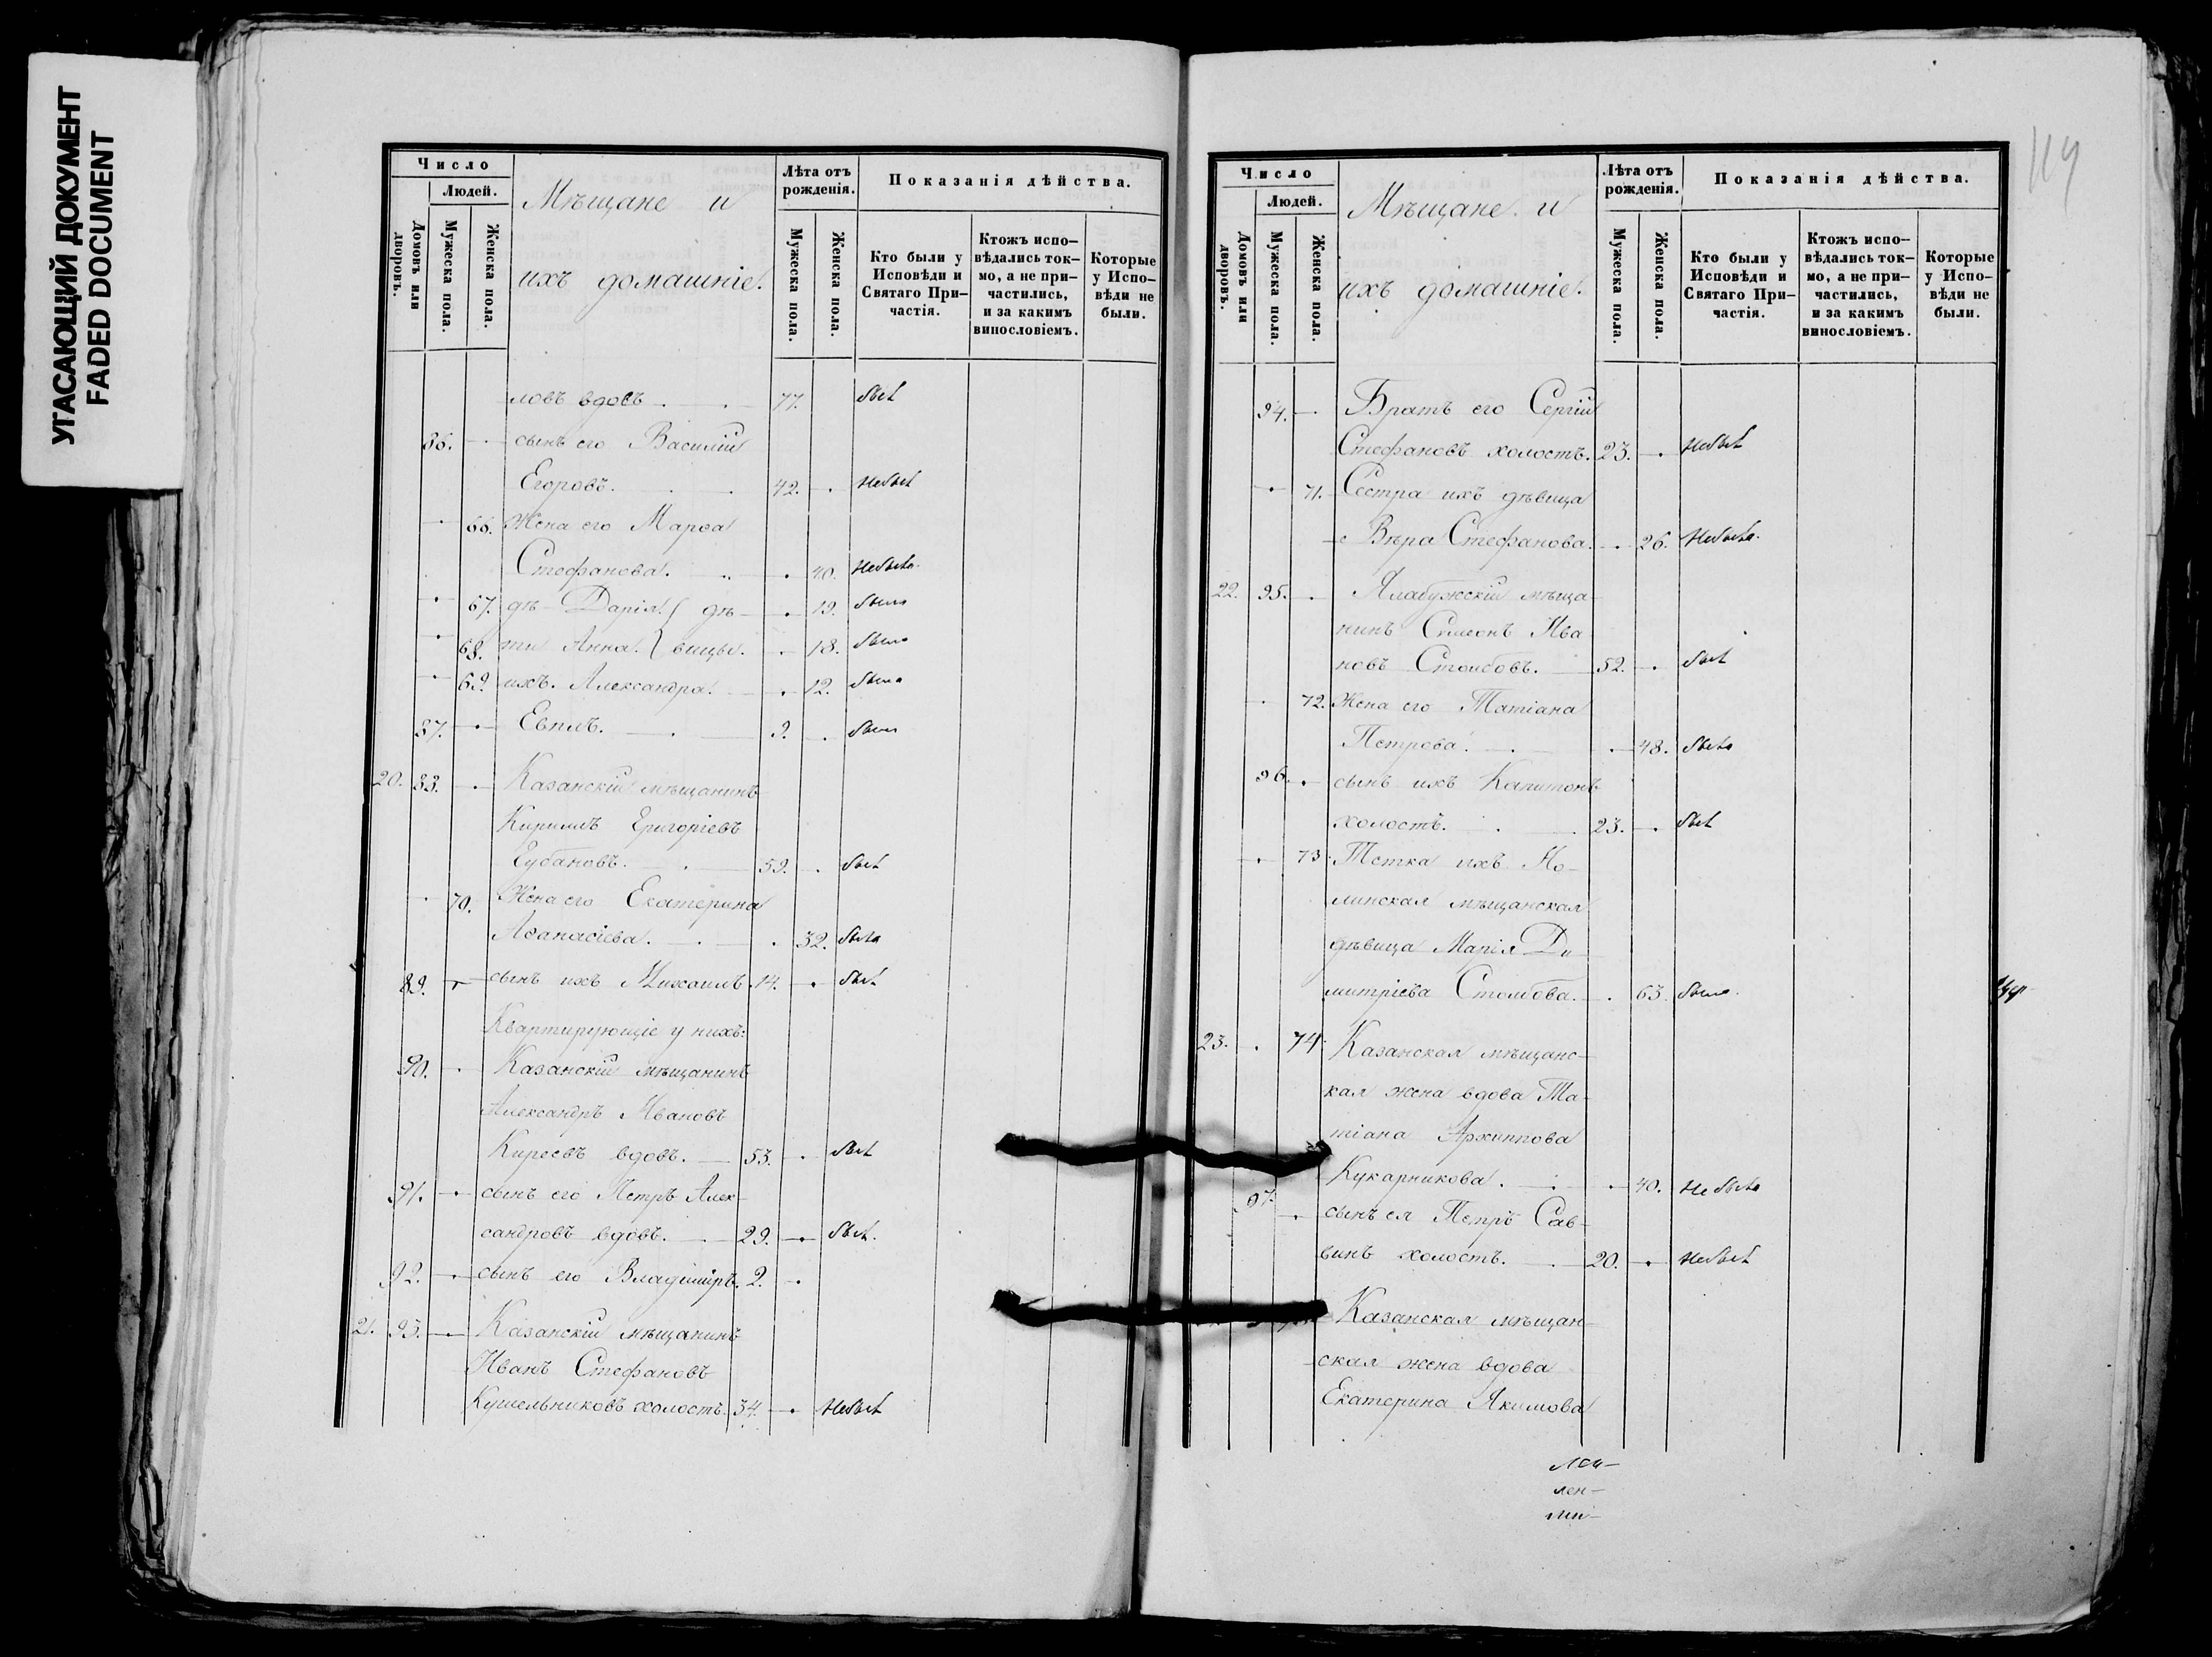 УГАСАЮЩИЙ ДОКУМЕНТ
FADED DOCUMENT
Число
Людей.
Домовъ или дворовъ.
Мужеска пола.
Женска пола.
Мѣщане и
ихъ домашніе.
Лѣта отъ рожденія.
Мужеска пола.
Женска пола.
Показанія дѣйства.
Кто были у Исповѣди и Святаго При-
частія.
Ктожъ испо-
вѣдались ток-
мо, а не при-
частились,
и за какимъ
винословіемъ.
Которые
у Испо-
вѣди не
были.
ловъ вдовъ 77. былъ
86. сынъ его Василій
Егоровъ. 42. небылъ
66. Жена его Марѳа
Стефанова. 40. небыла
67. дѣ- Дарія { дѣ- 19. была
68. ти Анна. { вицы. 18. была
69. ихъ. Александра. 12. была
87. Евпл. 9. был
20. 88. Казанскій мѣщанинъ
Кириллъ Григоріевъ
Губановъ. 59. былъ
70. Жена его Екатерина
Аѳанасіева. 32. была
89. сынъ ихъ Михаилъ 14. былъ
Квартирующіе у нихъ:
90. Казанскій мѣщанинъ
Александръ Ивановъ
Киреевъ вдовъ. 53. былъ
91. сынъ его Петръ Алек-
сандровъ вдовъ. 29. былъ.
92. сынъ его Владиміръ. 2.
21. 93. Казанскій мѣщанинъ
Иванъ Стефановъ
Кушельниковъ холостъ. 34. небылъ
119
Число
Людей.
Домовъ или дворовъ.
Мужеска пола.
Женска пола.
Мѣщане и
ихъ домашніе.
Лѣта отъ рожденія.
Мужеска пола.
Женска пола.
Показанія дѣйства.
Кто были у Исповѣди и Святаго При-
частія.
Ктожъ испо-
вѣдались ток-
мо, а не при-
частились,
и за какимъ
винословіемъ.
Которые
у Испо-
вѣди не
были.
94. Братъ его Сергій
Стефановъ холостъ. 23. небылъ
71. Сестра ихъ дѣвица
Вѣра Стефанова. 26. небыла
22. 95. Алабужскій мѣща-
нинъ Симеонъ Ива-
новъ Столбовъ. 52. былъ
72. Жена его Татіана
Петрова. 48. была
96. сынъ ихъ Капитонъ
холостъ. 23. былъ
73. Тетка ихъ Но-
линская мѣщанская
дѣвица Марія Ди-
митріева Столбова. 63. была
23. 74. Казанская мѣщанс-
кая жена вдова Та-
тіана Архиппова
Кукарникова. 40. не была
97. сынъ ея Петръ Сав-
винъ холостъ. 20. небылъ
Казанская мѣщан-
ская жена вдова
Екатерина Якимова